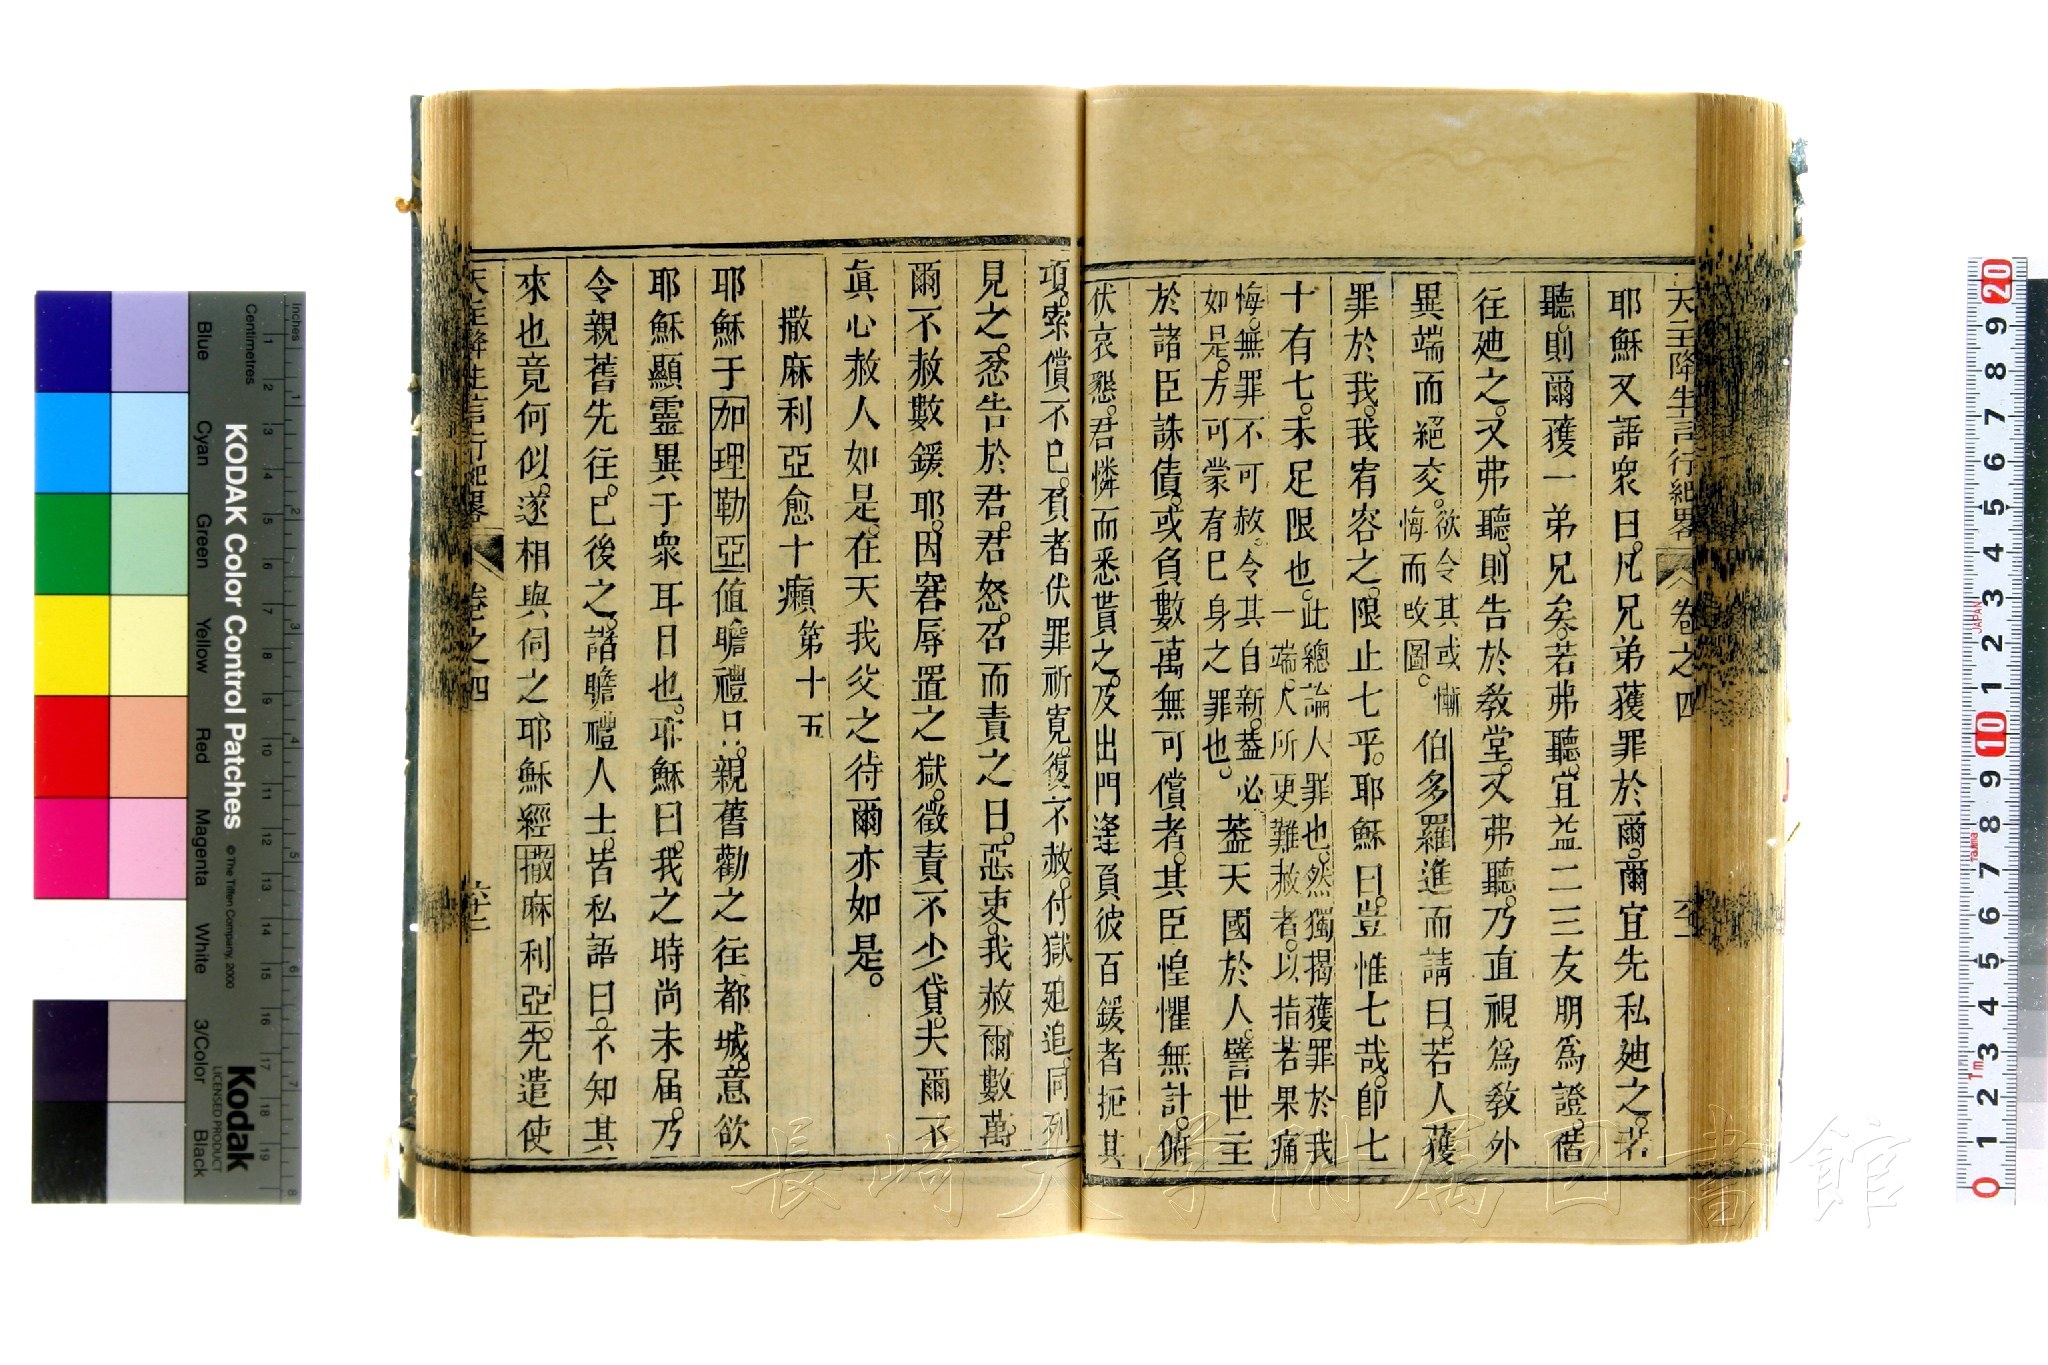 天主降生言行紀畧 卷之四
耶穌又語衆曰。凡兄弟獲罪於爾。爾宜先私廸之。若
聽。則爾獲一弟兄矣。若弗聽。宜益二三友朋爲證。偕
往廸之。又弗聽。則告於敎堂。又弗聽。乃直視爲敎外
異端而絕交。欲令其或慚悔而改圖。伯多羅進而請曰。若人獲
罪於我。我宥容之。限止七乎。耶穌曰。豈惟七哉。卽七
十有七。未足限也。此總論人罪也。然獨揭獲罪於我一端。人所更難赦者。以指若果痛
悔。無罪不可赦。令其自新。葢必如是。方可蒙宥已身之罪也。葢天國於人。譬世主
於諸臣誅債。或負數萬無可償者。其臣惶懼無計。俯
伏哀懇。君憐而悉貰之。及出門逢負彼百鍰者扼其
項。索償不已。負者伏罪祈寬。復不赦。付獄廹追。同列
見之。忿告於君。君怒。召而責之曰。惡吏。我赦爾數萬。
爾不赦數鍰耶。因窘辱置之獄。徵責不少貸。夫爾不
眞心赦人如是。在天我父之待爾亦如是。
撒麻利亞愈十癩 第十五
耶穌于加理勒亞値瞻禮日。親舊勸之往都城。意欲
耶穌顯靈異于衆耳目也。耶穌曰。我之時尚未届。乃
令親舊先往。已後之。諸瞻禮人士。皆私語曰。不知其
來也竟何似。遂相與伺之耶穌經撒麻利亞。先遣使
天主降生言行紀畧 卷之四
KODAK Color Control Patches
© The Tiffen Company, 2000
Kodak
LICENSED PRODUCT
Inches
Centimetres
Blue
Cyan
Green
Yellow
Red
Magenta
White
3/Color
Black
長崎大学附属図書館